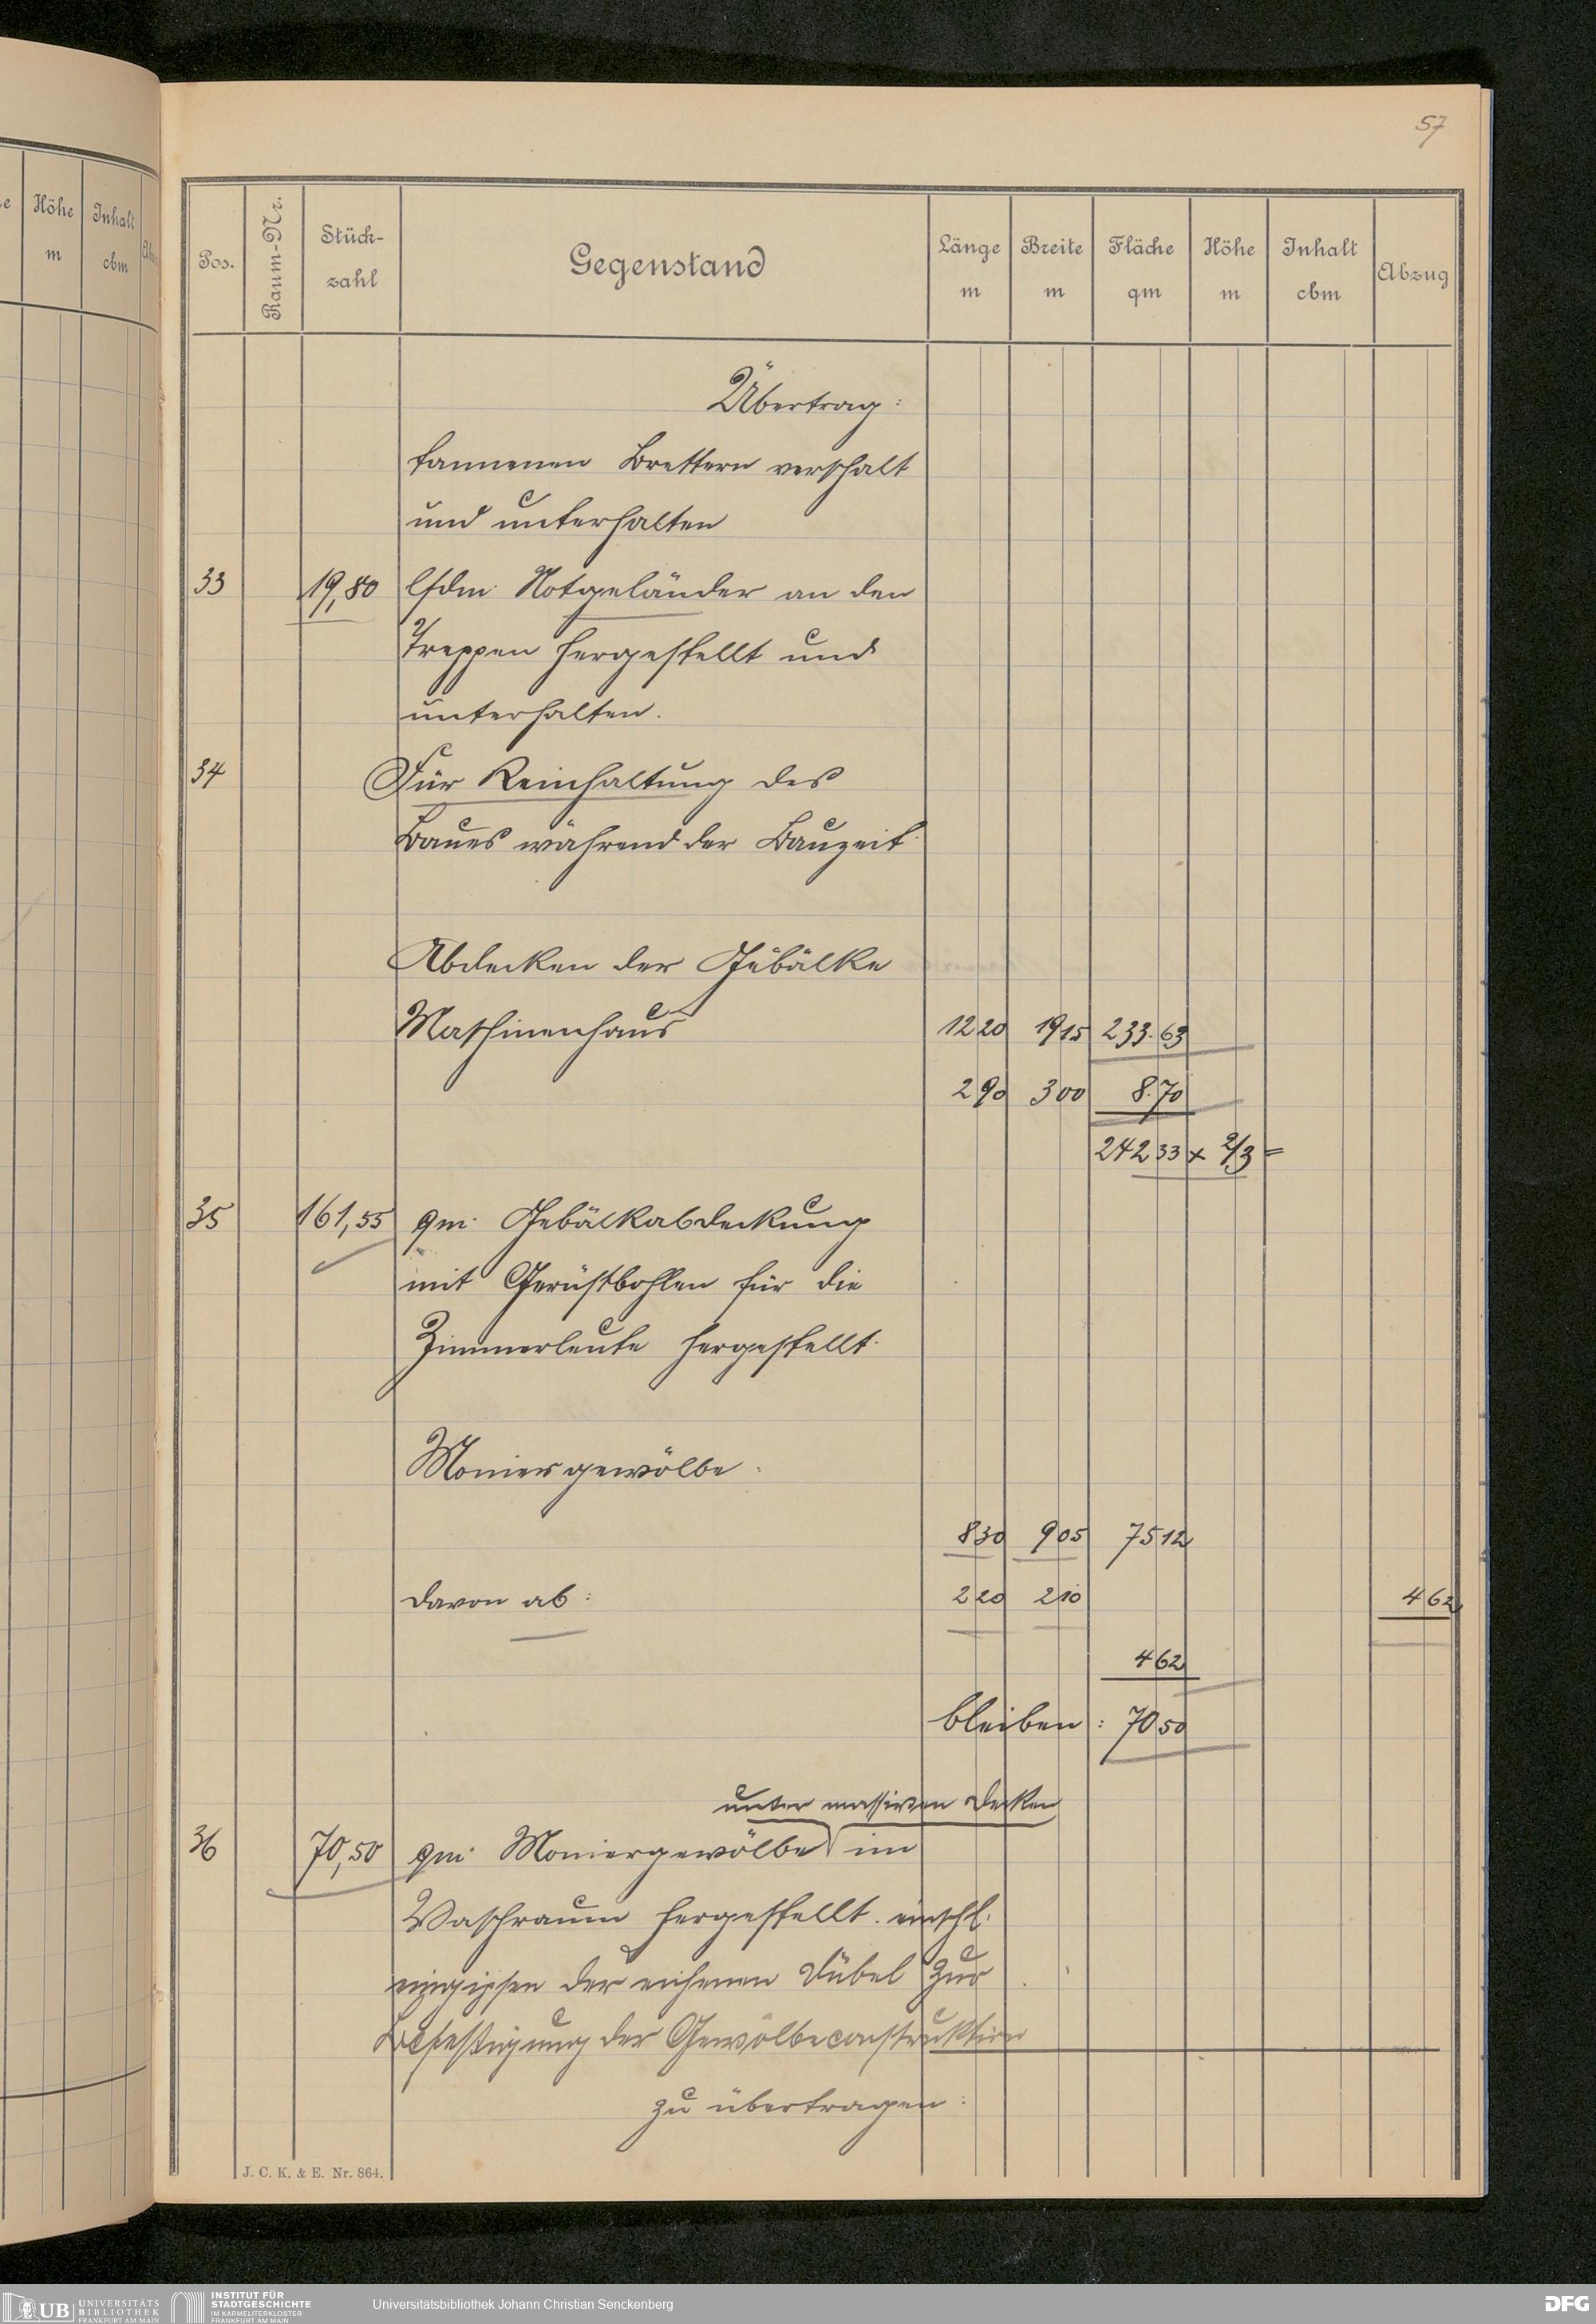 57
e Höhe Inhalt
m cbm
Pos. Raum-Nr. Stück-zahl Gegenstand Länge m Breite m Fläche qm Höhe m Inhalt cbm Abzug
Übertrag:
tannenen Brettern verschalt
und unterhalten
33 19,80 lfdm. Notgeländer an den
Treppen hergestellt und
unterhalten.
34 Für Reinhaltung des
Baues während der Bauzeit.
Abdecken der Gebälke
Maschinenhaus 12 20 19 15 233.63
2 90 3 00 8.70
242 33 x 2/3 =
35 161,55 qm. Gebälkabdeckung
mit Gerüstbohlen für die
Zimmerleute hergestellt.
Moniergewölbe:
8 30 9 05 75 12
davon ab: 2 20 2 10 4 62
4 62
bleiben: 70 50
unter massiven Decken
36 70,50 qm. Moniergewölbe im
Waschraum hergestellt. einschl.
eingipsen der eichenen Dübel zur
Befestigung der Gewölbeconstruktion
zu übertragen:
J. C. K. & E. Nr. 864.
UB UNIVERSITÄTS
BIBLIOTHEK
FRANKFURT AM MAIN
INSTITUT FÜR
STADTGESCHICHTE
IM KARMELITERKLOSTER
FRANKFURT AM MAIN
Universitätsbibliothek Johann Christian Senckenberg
DFG